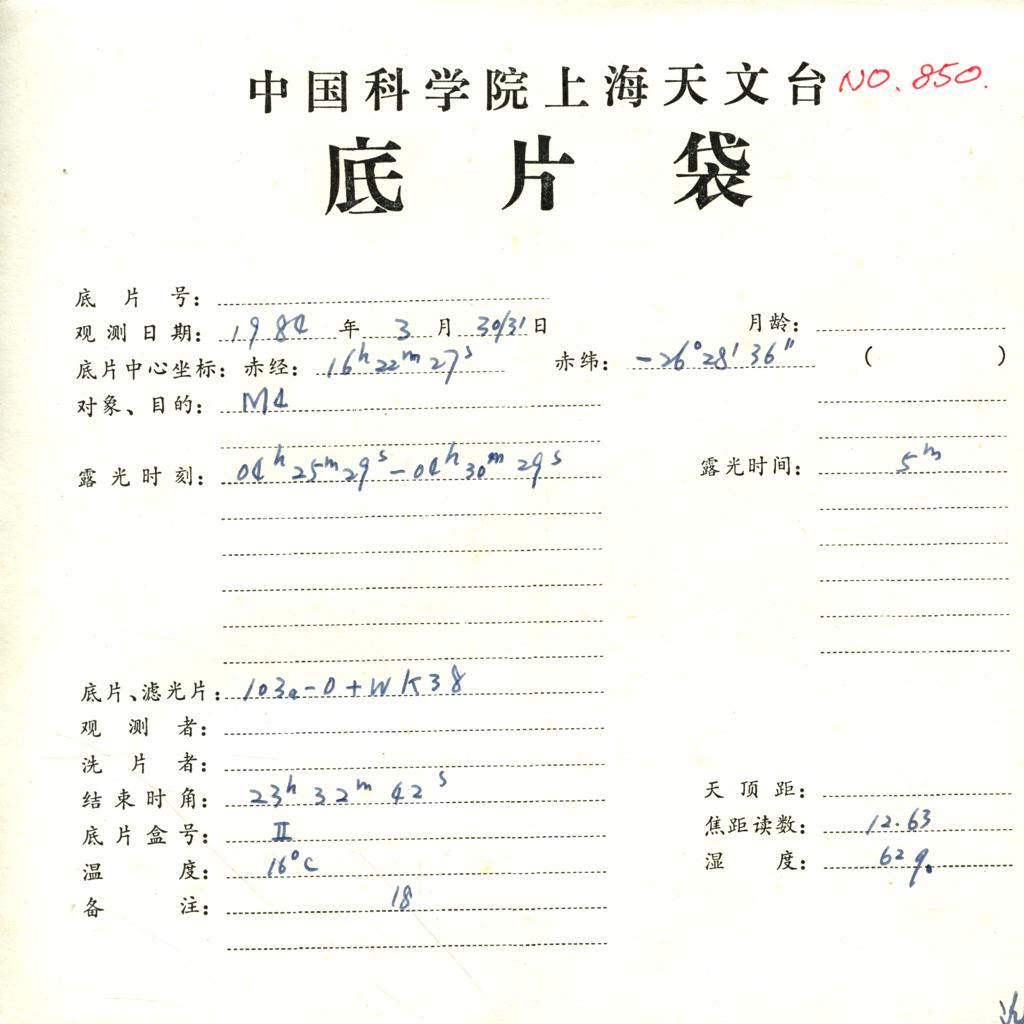 中国科学院上海天文台 NO. 850.
底片袋
底片号：
观测日期： 1984 年 3 月 30/31 日 月龄：
底片中心坐标：赤经： 16h 22m 27s 赤纬： -26° 28' 36" ( )
对象、目的： M4
露光时刻： 04h 25m 29s - 04h 30m 29s 露光时间： 5m
底片、滤光片： 103a-O + WK38
观测者：
洗片者：
结束时角： 23h 32m 42s 天顶距：
底片盒号： II 焦距读数： 12.63
温度： 16°C 湿度： 62%
备注： 18